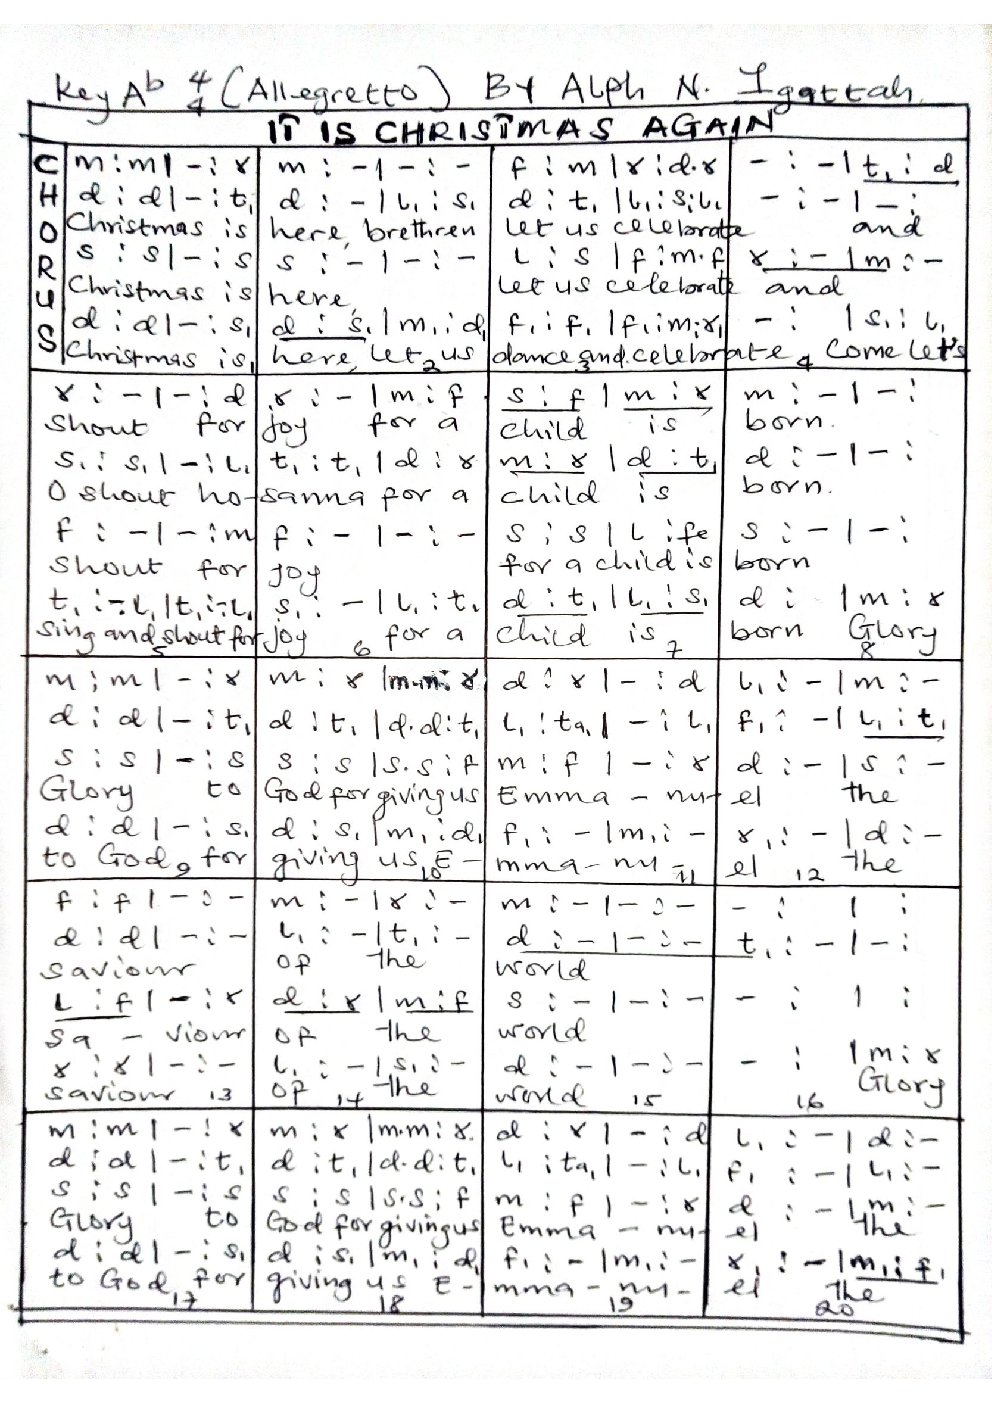 Key Ab 4/4 (Allegretto) By Alph N. Igattah
IT IS CHRISTMAS AGAIN
CHORUS
m : m | - : r m : - | - : - f : m | r : d.r - : - | t, : d
d : d | - : t, d : - | l, : s, d : t, | l, : s,.l, - : - | - :
Christmas is here, brethren let us celebrate and
s : s | - : s s : - | - : - l : s | f : m.f r : - | m : -
Christmas is here, let us celebrate and
d : d | - : s, d : s, | m, : d, f, : f, | f, : m,.r, - : | s, : l,
Christmas is, 1 here, let 2 us dance and 3 celebrate 4 Come let's
r : - | - : d r : - | m : f s : f | m : r m : - | - :
Shout for joy for a child is born.
s, : s, | - : l, t, : t, | d : r m : r | d : t, d : - | - :
O shout ho-sanna for a child is born.
f : - | - : m f : - | - : - s : s | l : fe s : - | - :
Shout for joy for a child is born
t, : -.l, | t, : -.l, s, : - | l, : t, d : t, | l, : s, d : | m : r
sing and 5 shout for joy 6 for a child is 7 born Glory 8
m : m | - : r m : r | m.m : r d : r | - : d l, : - | m : -
d : d | - : t, d : t, | d.d : t, l, : ta, | - : l, f, : - | l, : t,
s : s | - : s s : s | s.s : f m : f | - : r d : - | s : -
Glory to God for giving us Emma - nu- el the
d : d | - : s, d : s, | m, : d, f, : - | m, : - r, : - | d : -
to God 9 for giving us 10 E - mma - nu - 11 el 12 the
f : f | - : - m : - | r : - m : - | - : - - : | :
d : d | - : - l, : - | t, : - d : - | - : - t, : - | - :
saviour of the world
l : f | - : r d : r | m : f s : - | - : - - : | :
Sa - viour of the world
r : r | - : - l, : - | s, : - d : - | - : - - : | m : r
saviour 13 of 14 the world 15 16 Glory
m : m | - : r m : r | m.m : r d : r | - : d l, : - | d : -
d : d | - : t, d : t, | d.d : t, l, : ta, | - : l, f, : - | l, : -
s : s | - : s s : s | s.s : f m : f | - : r d : - | m : -
Glory to God for giving us Emma - nu- el the
d : d | - : s, d : s, | m, : d, f, : - | m, : - r, : - | m, : f,
to God 17 for giving us 18 E - mma - nu - 19 el the 20